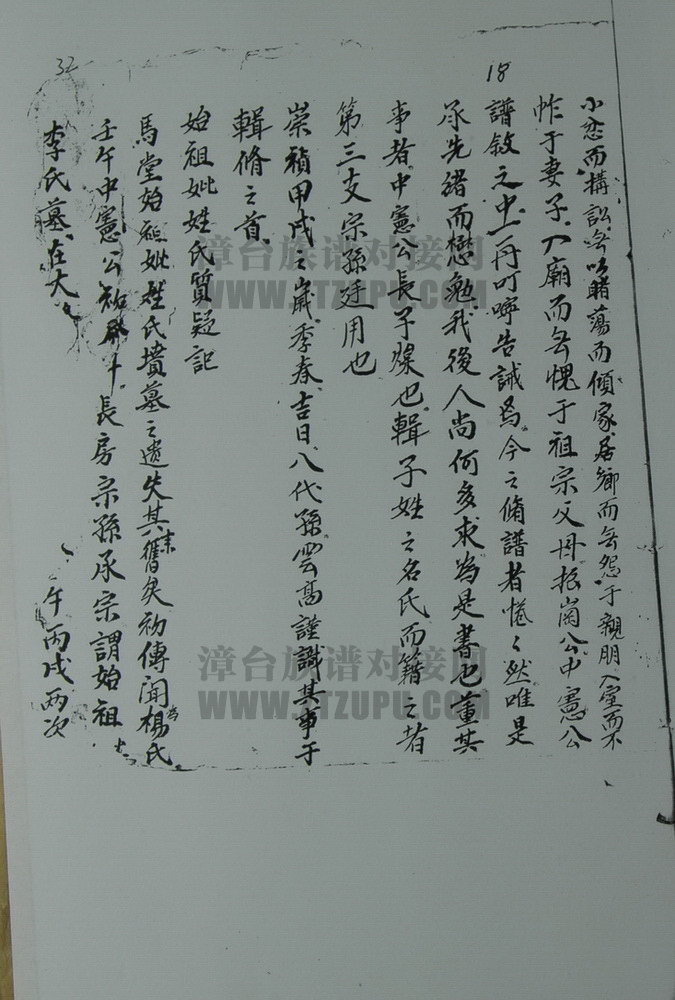 32
18
小忿而搆訟無以賭蕩而傾家居鄉而無怨于親朋入室而不
怍于妻子入廟而無愧于祖宗父母按崗公中憲公
譜敘之中一再叮嚀告誡焉今之脩譜者惓〻然唯是
承先緒而懋勉我後人尚何多求為是書也董其
事者中憲公長子燦也輯子姓之名氏而籍之者
第三支宗孫廷用也
崇禎甲戌之歲季春吉日八代孫雲高謹識其事于
輯脩之首
始祖妣姓氏質疑記
馬堂始祖妣姓氏墳墓之遺失其來舊矣初傳聞為楊氏
壬午中憲公知 長房宗孫承宗謂始祖
李氏墓在大 午丙戌兩次
漳台族谱对接网
WWW.ZTZUPU.COM
漳台族谱对接网
WWW.ZTZUPU.COM